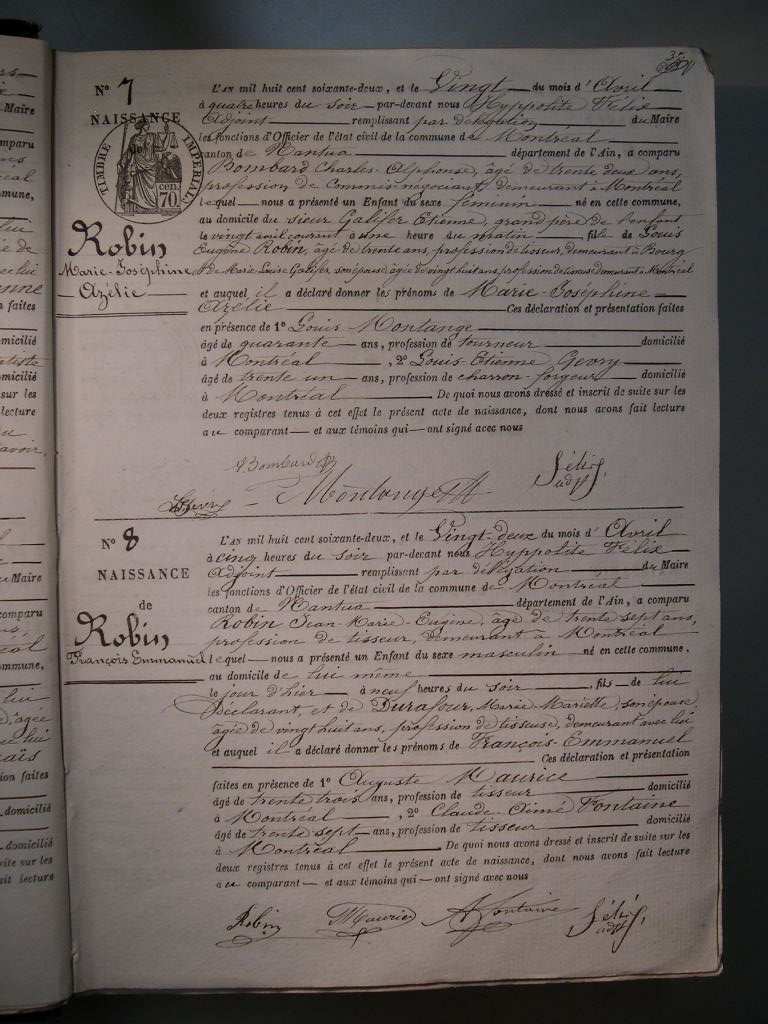 N° 7
NAISSANCE
de
TIMBRE IMPERIAL
70 cen.
Robin
Marie-Joséphine
Azélie
L'AN mil huit cent soixante-deux, et le Vingt du mois d'Avril
à quatre heures du soir par-devant nous Hyppolite Félix
Adjoint remplissant par délégation du Maire
les fonctions d'Officier de l'état civil de la commune de Montréal
canton de Nantua département de l'Ain, a comparu
Bombard Charles Alphonse, âgé de trente deux ans,
profession de Commis négociant, demeurant à Montréal
lequel nous a présenté un Enfant du sexe féminin né en cette commune,
au domicile du sieur Galifer Etienne, grand père de l'enfant
le vingt avril courant à une heure du matin fille de Louis
Eugène Robin, âgé de trente ans, profession de tisseur, demeurant à Bourg
& de Marie Luise Galifer, son épouse, âgée de vingt huit ans, profession de demeurant à Montréal
et auquel il a déclaré donner les prénoms de Marie-Joséphine
Azélie Ces déclaration et présentation faites
en présence de 1° Louis Montange
âgé de quarante ans, profession de tourneur domicilié
à Montréal, 2° Louis-Etienne Gevry
âgé de trente un ans, profession de charron-forgeur domicilié
à Montréal De quoi nous avons dressé et inscrit de suite sur les
deux registres tenus à cet effet le présent acte de naissance, dont nous avons fait lecture
au comparant et aux témoins qui ont signé avec nous
Bombard
Félix
adjt
Gevry
Montange
N° 8
NAISSANCE
de
Robin
François Emmanuel
L'AN mil huit cent soixante-deux, et le Vingt-deux du mois d'Avril
à cinq heures du soir par-devant nous Hyppolite Félix
Adjoint remplissant par délégation du Maire
les fonctions d'Officier de l'état civil de la commune de Montréal
canton de Nantua département de l'Ain, a comparu
Robin Jean-Marie-Eugène, âgé de trente sept ans,
profession de tisseur, demeurant à Montréal
lequel nous a présenté un Enfant du sexe masculin né en cette commune,
au domicile de lui même
le jour d'hier à neuf heures du soir, fils de lui
Déclarant, et de Durafour, Marie Mariette, son épouse,
âgée de vingt huit ans, profession de tisseuse, demeurant avec lui
et auquel il a déclaré donner les prénoms de François-Emmanuel
Ces déclaration et présentation
faites en présence de 1° Auguste Maurice
âgé de trente trois ans, profession de tisseur domicilié
à Montréal, 2° Claude Aimé Fontaine
âgé de trente sept ans, profession de tisseur domicilié
à Montréal De quoi nous avons dressé et inscrit de suite sur les
deux registres tenus à cet effet le présent acte de naissance, dont nous avons fait lecture
au comparant et aux témoins qui ont signé avec nous
Robin
Maurice
A Fontaine
Félix
adjt